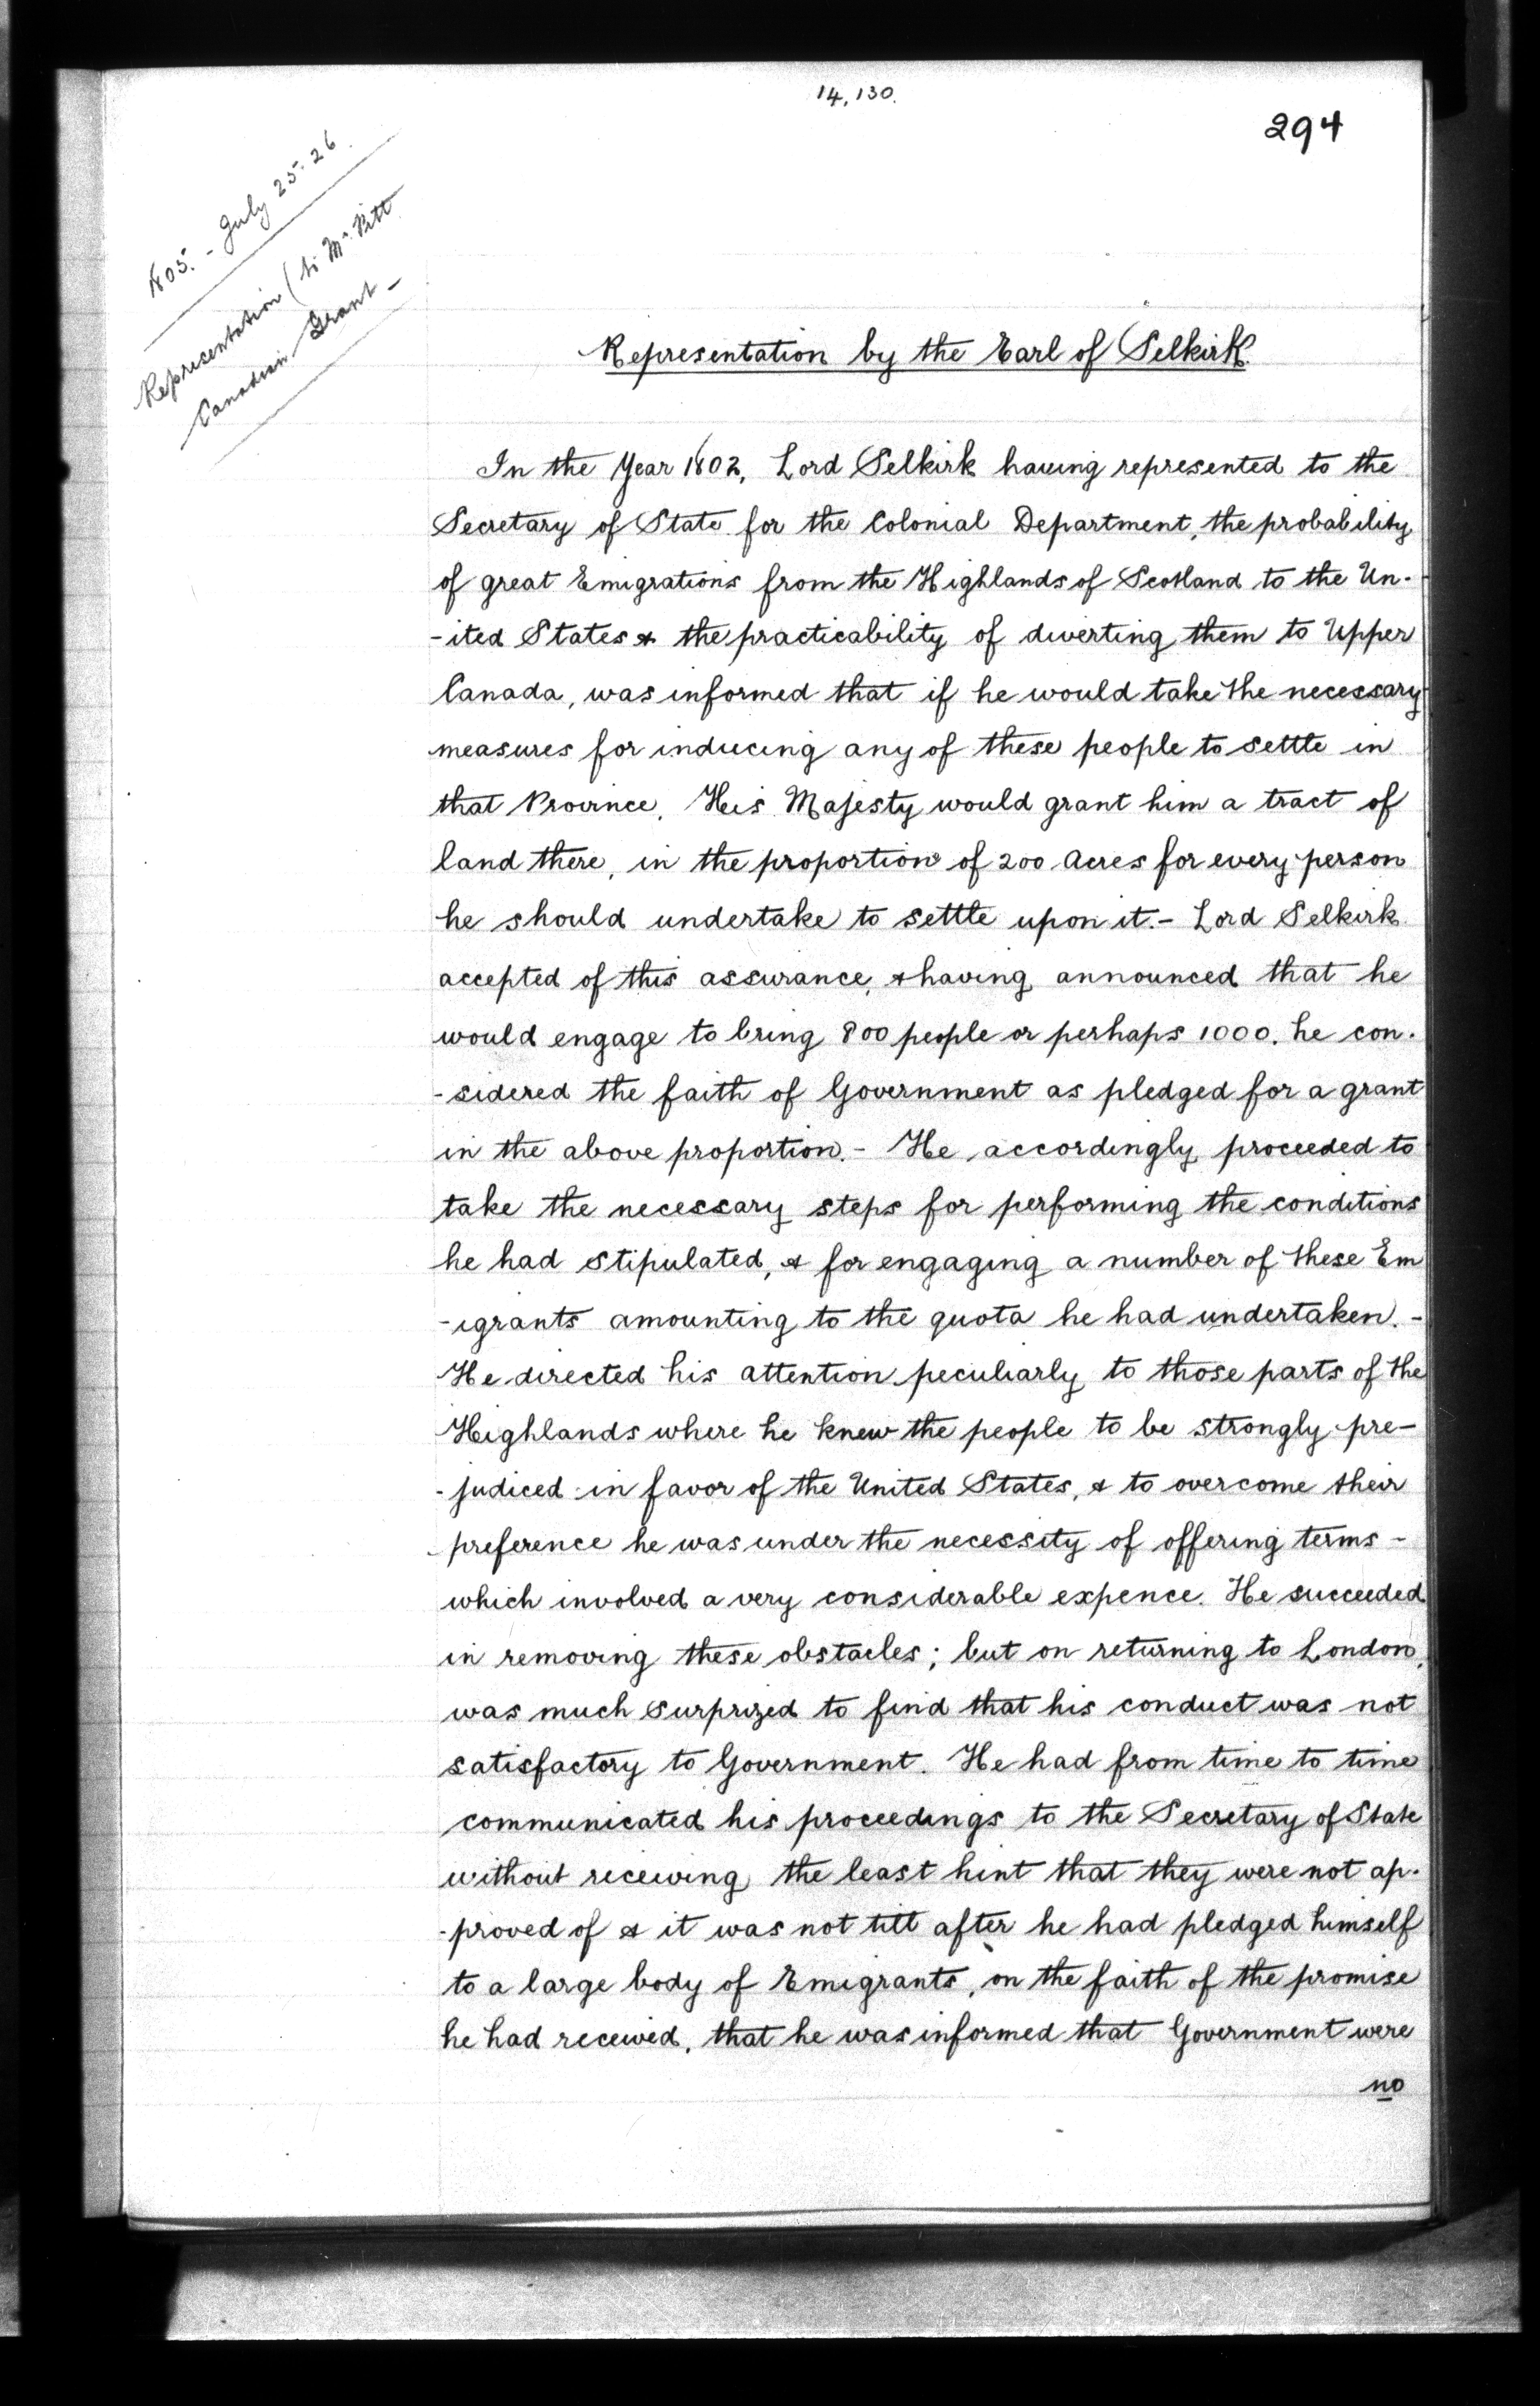 14,130.
294
1805. - July 25. 26.
Representation (to Mr. Pitt
Canadian Grant -
Representation by the Earl of Selkirk.
In the Year 1802, Lord Selkirk having represented to the
Secretary of State for the Colonial Department, the probability
of great Emigrations from the Highlands of Scotland to the Un-
-ited States & the practicability of diverting them to Upper
Canada, was informed that if he would take the necessary
measures for inducing any of these people to settle in
that Province, His Majesty would grant him a tract of
land there, in the proportion of 200 Acres for every person
he should undertake to settle upon it. - Lord Selkirk
accepted of this assurance, & having announced that he
would engage to bring 800 people or perhaps 1000, he con-
-sidered the faith of Government as pledged for a grant
in the above proportion. - He accordingly proceeded to
take the necessary steps for performing the conditions
he had stipulated, & for engaging a number of these Em
-igrants amounting to the quota he had undertaken. -
He directed his attention peculiarly to those parts of the
Highlands where he knew the people to be strongly pre-
-judiced in favor of the United States, & to overcome their
preference he was under the necessity of offering terms -
which involved a very considerable expence. He succeeded
in removing these obstacles; but on returning to London,
was much surprized to find that his conduct was not
satisfactory to Government. He had from time to time
communicated his proceedings to the Secretary of State
without receiving the least hint that they were not ap-
-proved of & it was not till after he had pledged himself
to a large body of Emigrants, on the faith of the promise
he had received, that he was informed that Government were
no